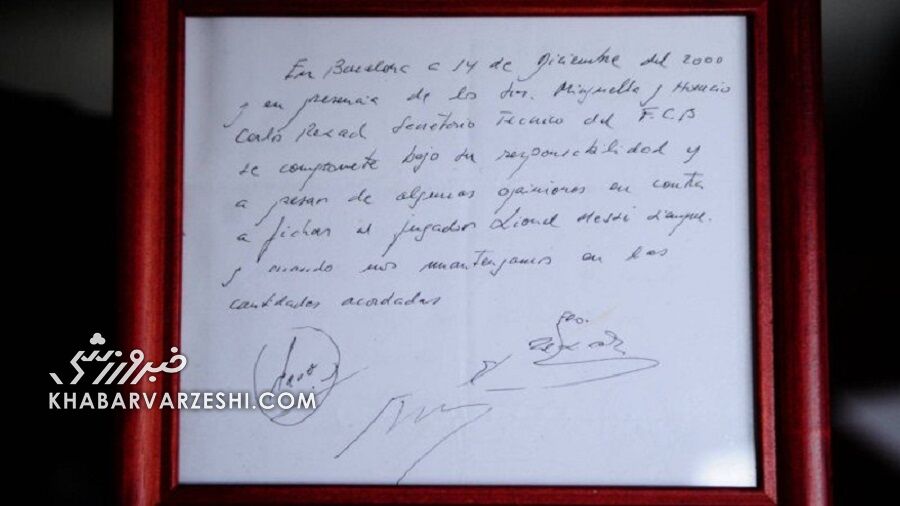 En Barcelona a 14 de Diciembre del 2000
y en presencia de los Srs. Minguella y Horacio
Carlos Rexach Secretorio Tecnico del F.C.B
se compromete bajo su responsabilidad y
a pesar de algunas opiniones en contra
a fichar al jugador Lionel Messi siempre
y cuando nos mantengamos en las
cantidades acordadas
خبرورزشی
KHABARVARZESHI.COM